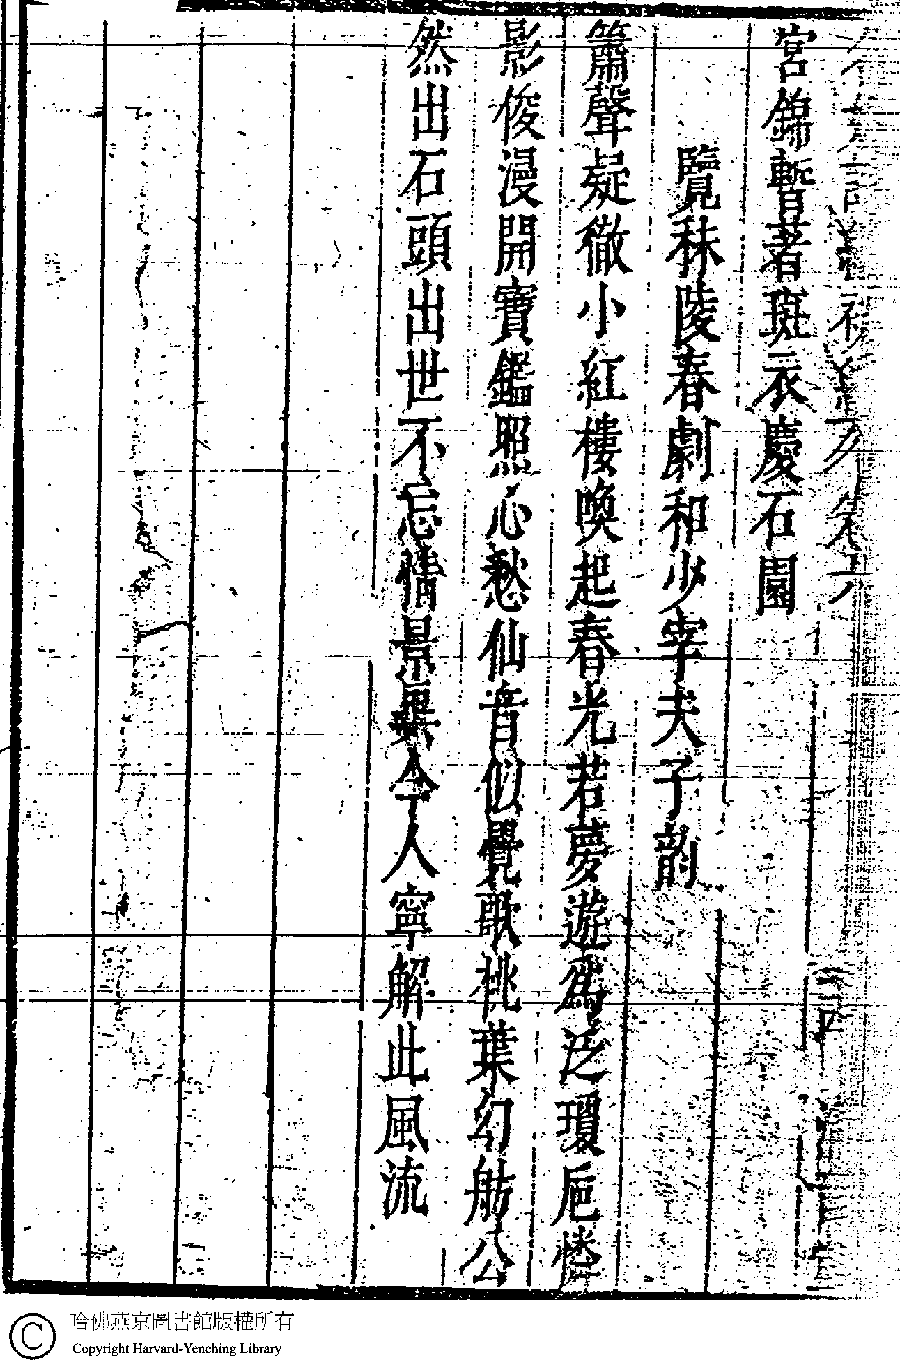 宮錦暫著斑衣慶石園
覽秣陵春劇和少宰夫子韵
簫聲疑徹小紅樓喚起春光若夢遊為泛瓊巵憐
影俊漫開寶鑑照心愁仙音似覺歌桃葉幻舫公
然出石頭出世不忘情景異令人寧解此風流
哈佛燕京圖書館版權所有
Copyright Harvard-Yenching Library